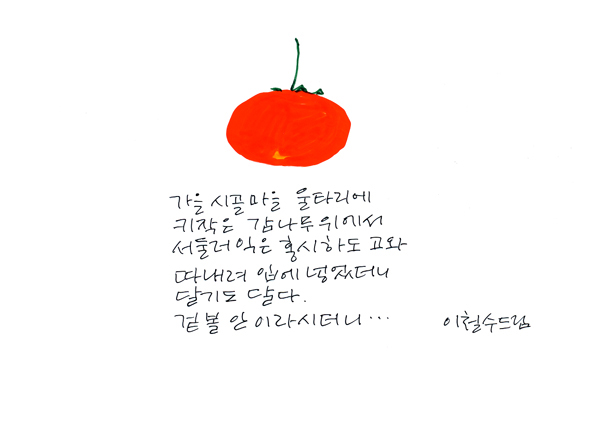 가을 시골마을 울타리에
키작은 감나무위에서
서둘러 익은 홍시하도 고와
따내려 입에 넣었더니
달기도 달다.
겉볼 안이라시더니…
이철수드림